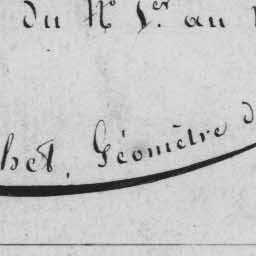 du N° 1er. au
het, Géomètre d